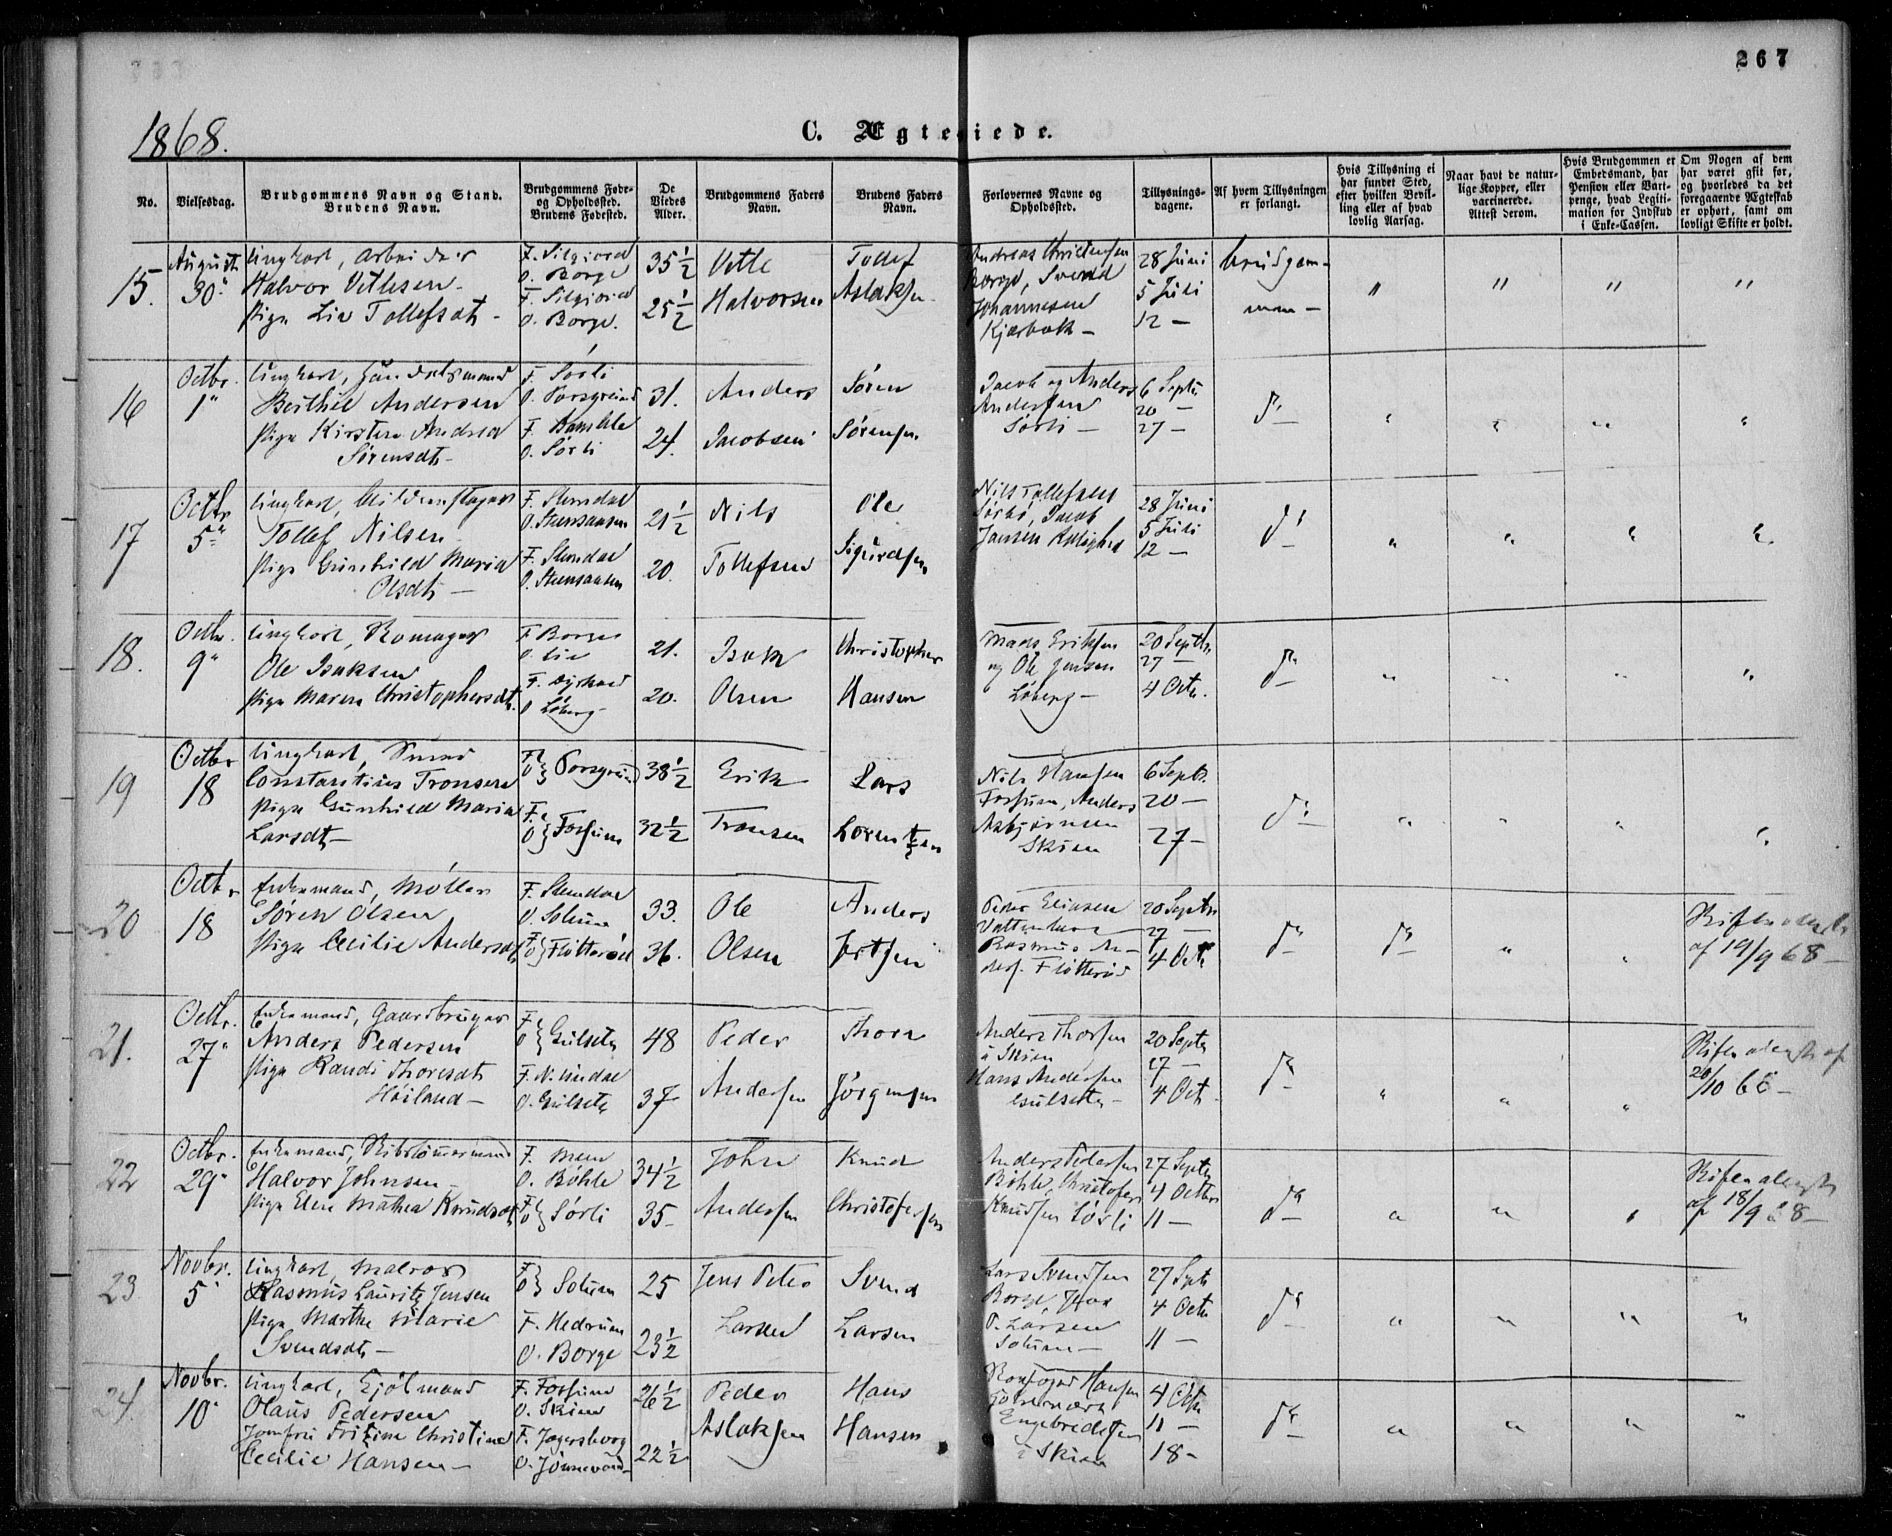 267
1868.
C. Ægteviede.
No.
Vielsesdag.
Brudgommens Navn og Stand.
Brudens Navn.
Brudgommens Føde-
og Opholdssted.
Brudens Fødested.
De
Viedes
Alder.
Brudgommens Faders
Navn.
Brudens Faders
Navn.
Forlovernes Navne og
Opholdssted.
Tillysnings-
dagene.
Af hvem Tillysningen
er forlangt.
Hvis Tillysning ei
har fundet Sted,
efter hvilken Bevil-
ling eller af hvad
lovlig Aarsag.
Naar havt de natur-
lige Kopper, eller
vaccinerede.
Attest derom.
Hvis Brudgommen er
Embedsmand, har
Pension eller Vart-
penge, hvad Legiti-
mation for Indskud
i Enke-Cassen.
Om Nogen af dem
har været gift før,
og hvorledes da det
foregaaende Ægteskab
er ophørt, samt om
lovligt Skifte er holdt.
15.
August
30"
Ungkarl, Arbeider
Halvor Vetlesen
Pige Liv Tollefsdt
F. Siljiord
O. Borge
F. Siljiord
O. Borge.
35 1/2
25 1/2
Vetle
Halvorsen
Tollef
Aslaksen
Andreas Christensen
Borge, Svend
Johannesen
Kjærbæk
28 Juni
5 Juli
12 —
Brudgom-
men
" " " "
16
Octbr.
1"
Ungkarl, Handelsmand
Berthel Andersen
Pige Kirstine Andrea
Sørensdt
F. Sörli
O. Porsgrund
F. Bamble
O. Sörli
31.
24.
Anders
Jacobsen
Sören
Sörensen
Jacob og Anders
Andersen
Sörli —
6 Septr
20 —
27 —
do
" " " "
17
Octbr
5"
Ungkarl,
Tollef Nilsen
Pige Gunhild Maria
Olsdt —
F. Slemdal
O. Steensaasen
F. Slemdal
O. Steensaasen
21 1/2
20.
Nils
Tollefsen
Ole
Sigurdsen
Nils Tollefsen
Jacob
Jansen Rolighed
28 Juni
5 Juli
12 —
do
" " " "
18.
Octbr.
9"
Ungkarl,
Ole Isaksen
Pige Maren Christophersdt.
F. Borge
O. Lie
F.
O. Löberg
21.
20.
Isak
Olsen
Christopher
Hansen
Mads Eriksen
og Ole Jensen
Löberg —
20 Septbr
27 —
4 Octr.
do
" " " "
19
Octbr
18
Ungkarl, Smed
Constantius Tronsen
Pige Gunhild Maria
Larsdt —
F.
O. } Porsgrund
F.
O. } Fossum
38 1/2
32 1/2
Erik
Tronsen
Lars
Lorentzen
Nils Hansen
Fossum, Anders
Asbjørnsen
Skien
6 Septr.
20 —
27 —
do
" " " "
20
Octbr
18
Enkemand, Möller
Sören Olsen
Pige Cecilie Andersdt
F. Slemdal
O. Solum
F.
O. } Flötteröd
33.
36.
Ole
Olsen
Anders
Peder Eliasen
Rasmus An-
ders. Flötteröd
20 Septbr
27 —
4 Octr
do
do
" "
Skiftesattest
af 19/9 68 —
21.
Octbr.
27"
Enkemand, Gaardbruger
Anders Pedersen
Pige Randi Thoresdt
Höiland —
F.
O. } Gulset
F.
O. Gulset
48
37
Peder
Andersen
Thore
Jörgensen
Anders Thorsen
i Skien
Hans Andersen
Gulset —
20 Septr
27 —
4 Octr.
do
" " "
Skiftesattest af
20/10 68 —
22
Octbr.
29"
Enkemand, Skibstömmermand
Halvor Johnsen
Pige Elen Mathea Knudsdt
F. Moen
O. Böhle
F.
O. } Sörli
34 1/2
35
John
Andersen
Knud
Christofersen
Anders Pedersen
Böhle, Christofer
Knudsen Sörli
27 Septr
4 Octbr
11 —
do
" " "
Skiftesattest
af 18/9 68 —
23
Novbr.
5"
Ungkarl, Matros
Rasmus Lauritz Jensen
Pige Marthe Marie
Svendsdt —
F.
O. } Solum
F. Hedrum
O. Borge
25
23 1/2
Jens Peter
Larsen
Svend
Larsen
Lars Svendsen
Borge, Jens
P. Larsen
Solum —
27 Septr
4 Octr
11 —
do
" " " "
24.
Novbr.
10"
Ungkarl,
Olaus Pedersen
Jomfru Fritine Christine
Cecilie Hansen —
F. Fossum
O. Skien
F. Jagersborg
O.
26 1/2
22 1/2
Peder
Aslaksen
Hans
Hansen
Hansen
Engebredtsen
i Skien
4 Octr
11 —
18 —
do
" " " "